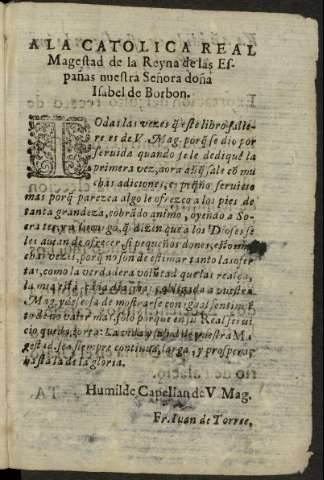 A LA CATOLICA REAL
Magestad de la Reyna de las Es-
pañas nuestra Señora doña
Isabel de Borbon.
Todas las vezes q̃ este libro saliere
es de V. Mag. porq̃ se dio por
seruida quando se le dediquè la
primera vez, aora aũq̃ sale cõ mu
chas adiciones, es pequeño seruicio
mas porq̃ parezca algo le ofrezco a los pies de
tanta grandeza, cobrãdo animo, oyendo a So-
crates, y a q̃ dizen que a los Dioses se
les auian de ofrecer, si pequeños dones,
chas vezes, porq̃ no son de estimar tanto las ofer
tas, como la verdadera volũtad que las realça,
la mia obligada a vuestra
Mag. y dessea de mostrarse con igual
to de no valer mas, solo porque en su Real serui
cio quede corta. La vida y salud de vuestra Ma
gestad, sea siempre continua, larga, y prospera,
hasta la de la gloria.
Humilde Capellan de V. Mag.
Fr. Iuan de Torres.